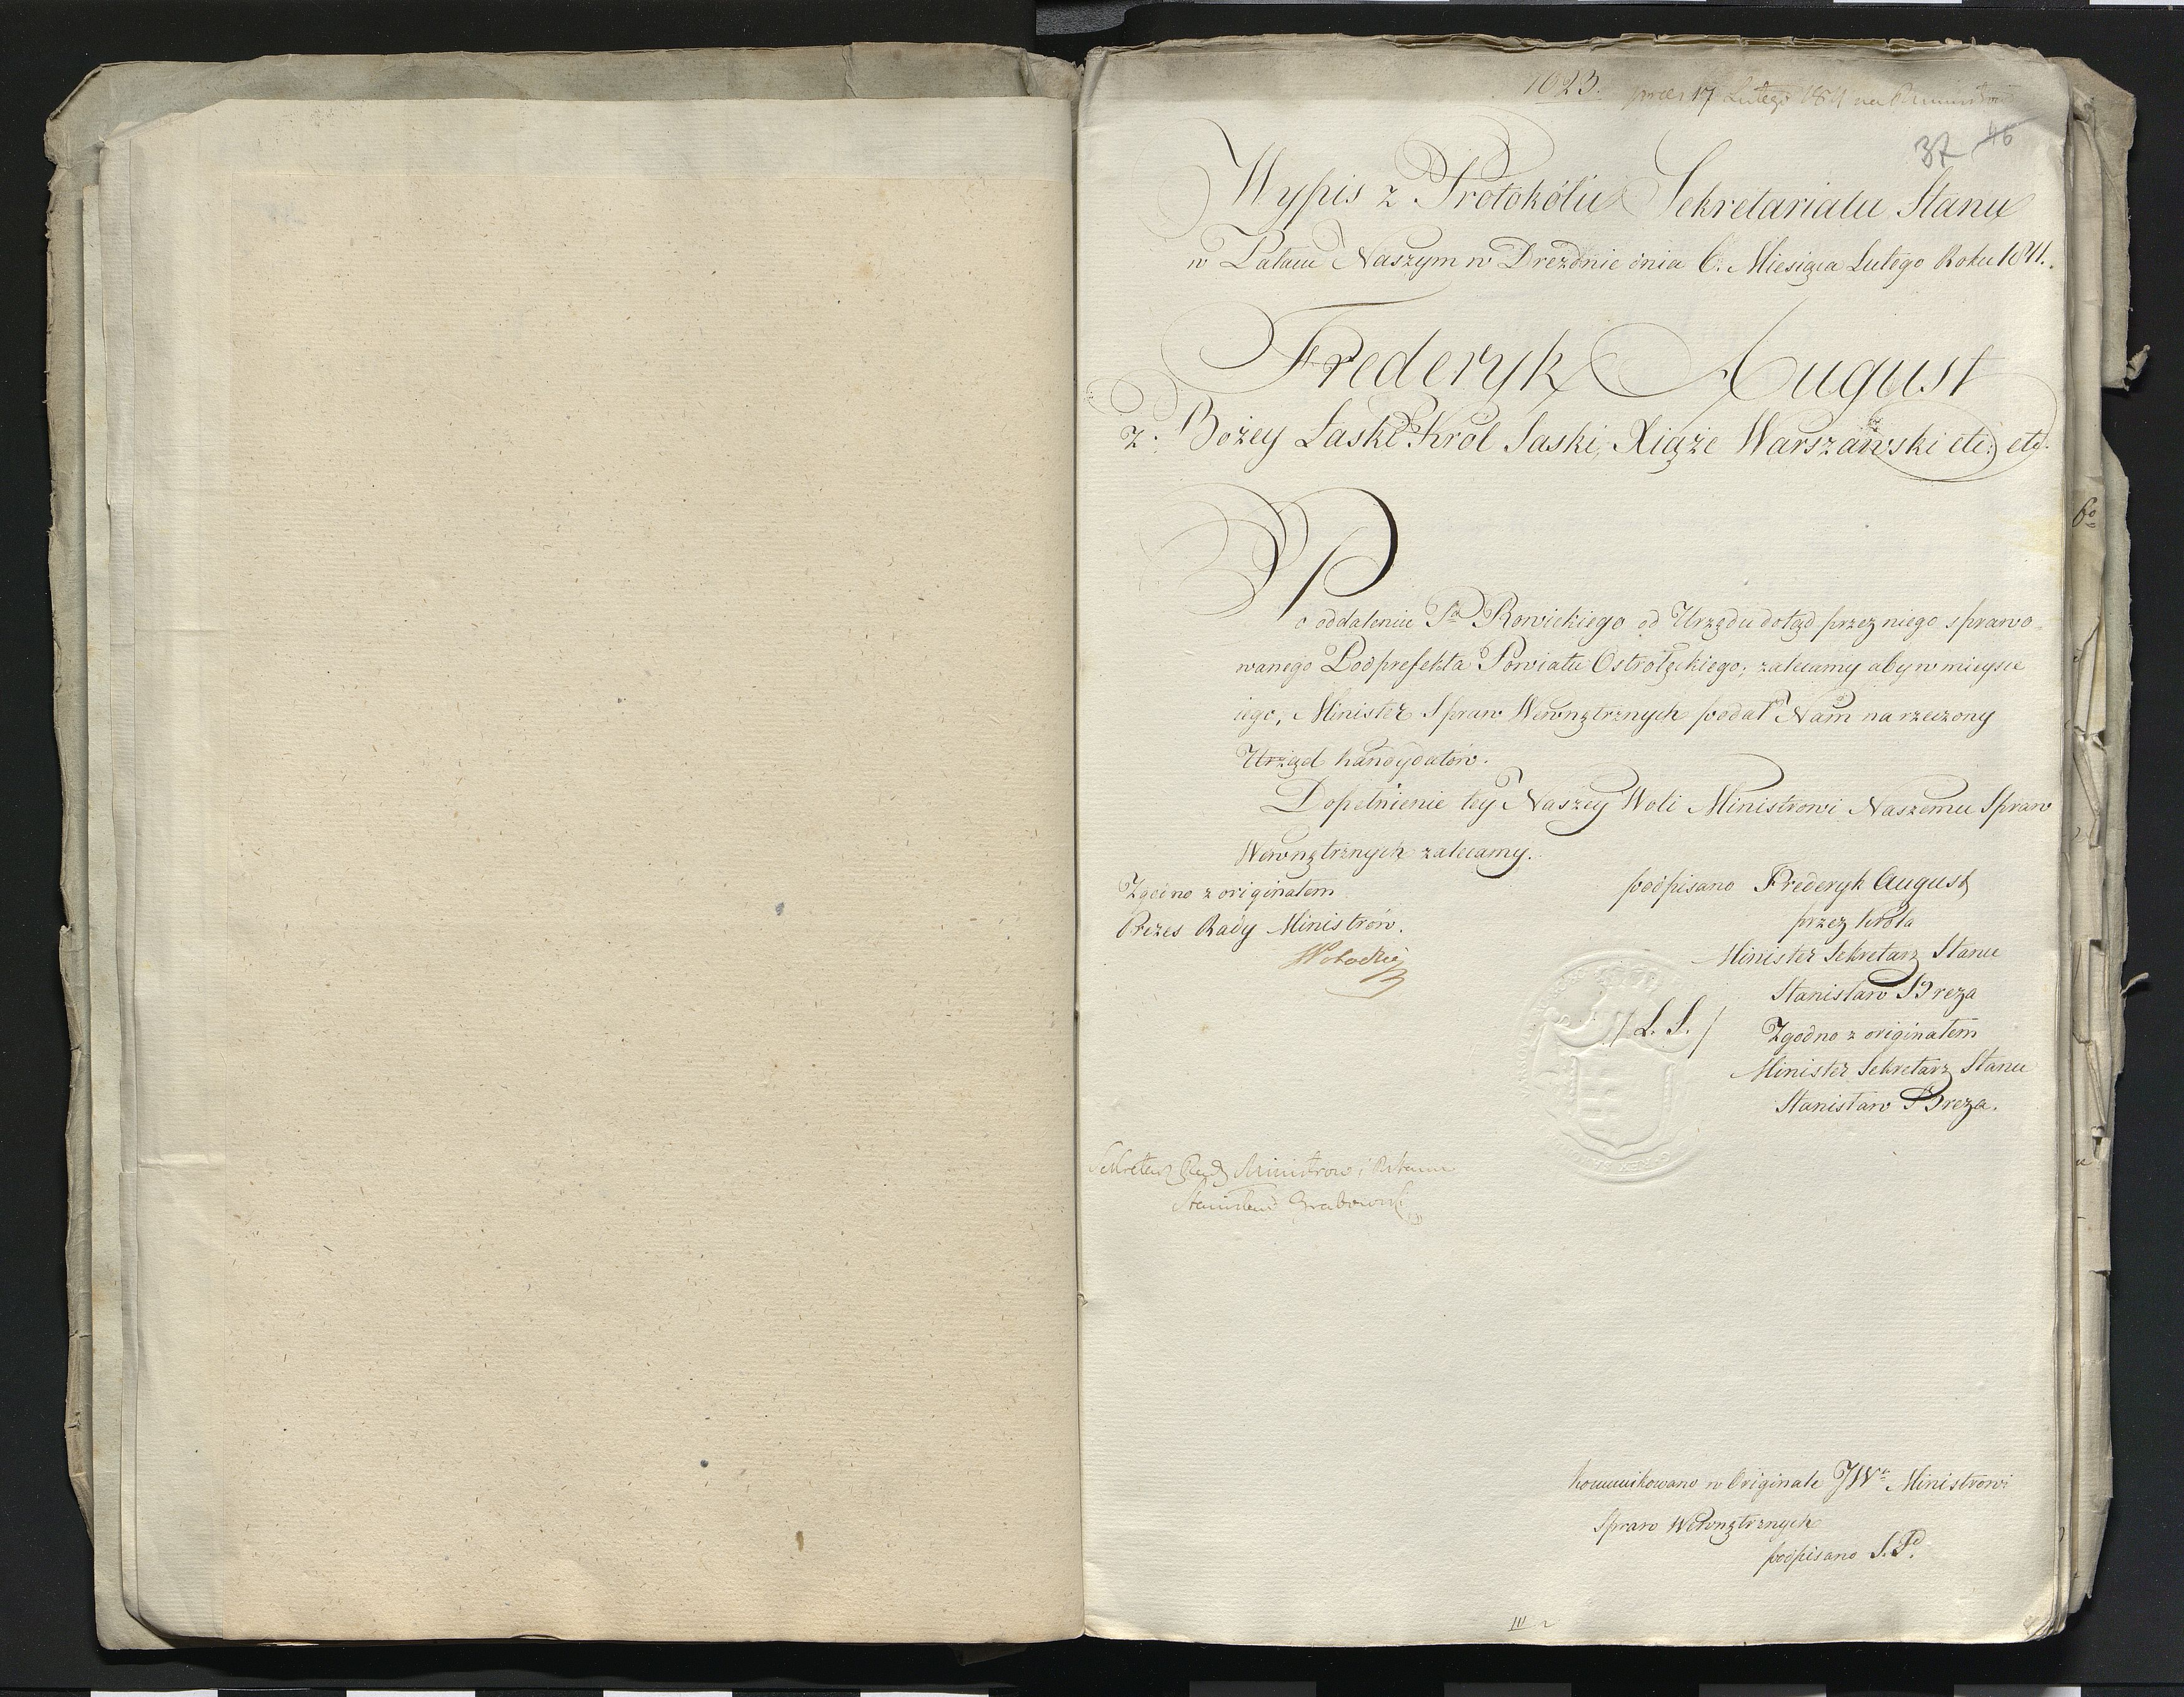 1623. 17 Lutego 1811
37 46
Wypis z Protokółu Sekretariatu Stanu
w Pałacu Naszym w Dreźdnie dnia 6. Miesiąca Lutego Roku 1811.
Frederyk August
z Bożey Łaski Król Saski, Xiąże Warszawski etc: etc:
Po oddaleniu Pa Rowickiego od Urzędu dotąd przez niego sprawo-
wanego Podprefekta Powiatu Ostrołęckiego; zalecamy aby w mieysce
iego, Minister Spraw Wewnętrznych podał Nam na rzeczony
Urząd kandydatów.
Dopełnienie tey Naszey Woli Ministrowi Naszemu Spraw
Wewnętrznych zalecamy.
Zgodno z originałem
Prezes Rady Ministrów.
podpisano Frederyk August
przez Króla
Minister Sekretarz Stanu
Stanisław Breza
/ L. S. /
Zgodno z originałem
Minister Sekretarz Stanu
Stanisław Breza.
Sekretarz Rady Ministrow i
Stanisław Grabowski
kommunikowano w Originale JWu Ministrowi
Spraw Wewnętrznych
podpisano S. P.
III
6o